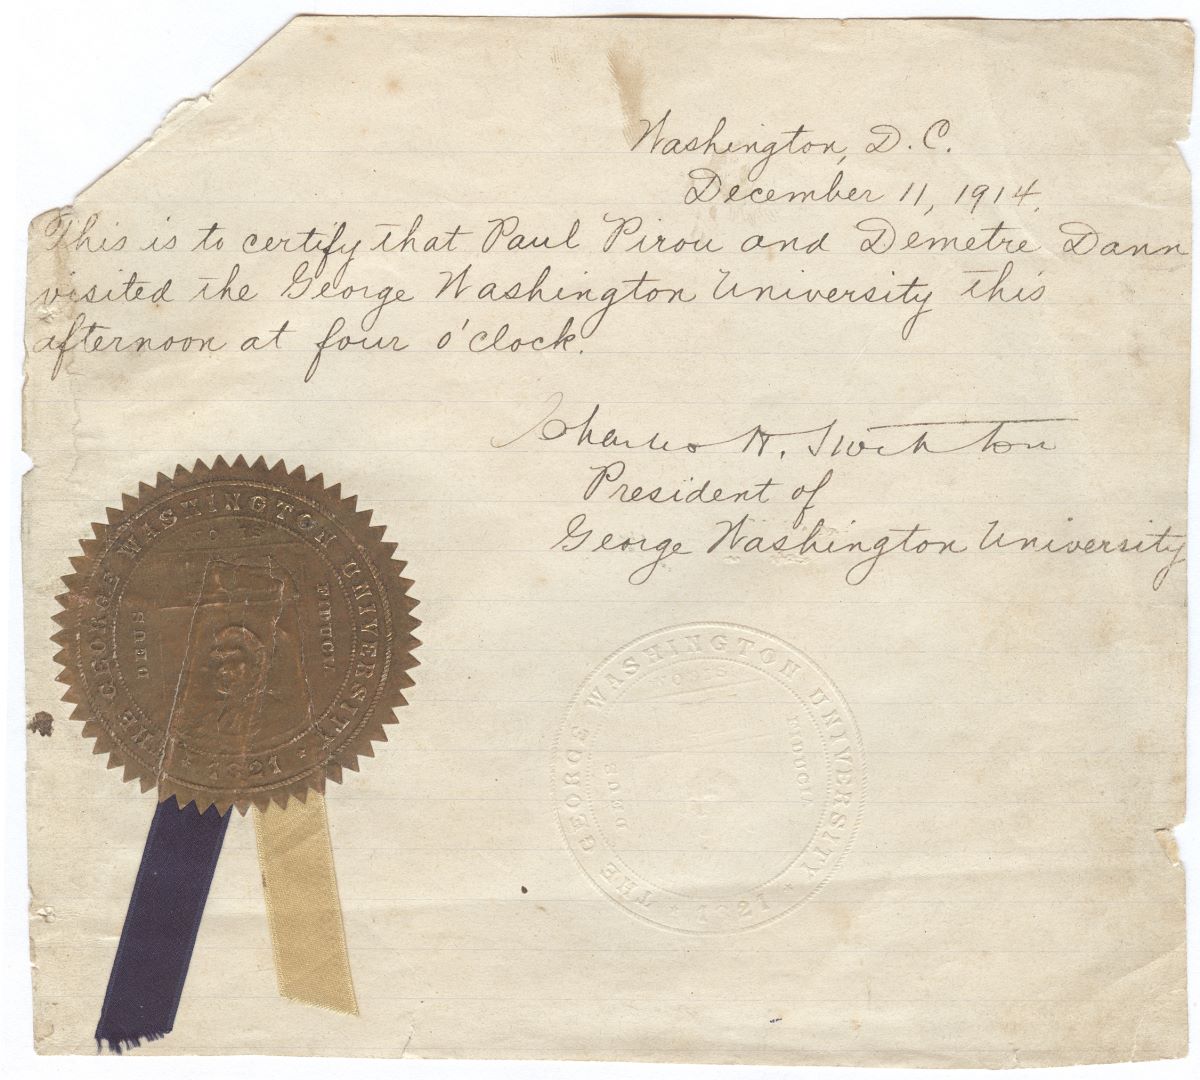 Washington, D.C.
December 11, 1914.
This is to certify that Paul Pirou and Demetre Dann
visited the George Washington University this
afternoon at four o'clock.
Charles H. Stockton
President of
George Washington University
THE GEORGE WASHINGTON UNIVERSITY
DEUS FIDUCIA
1821
THE GEORGE WASHINGTON UNIVERSITY
DEUS FIDUCIA
1821